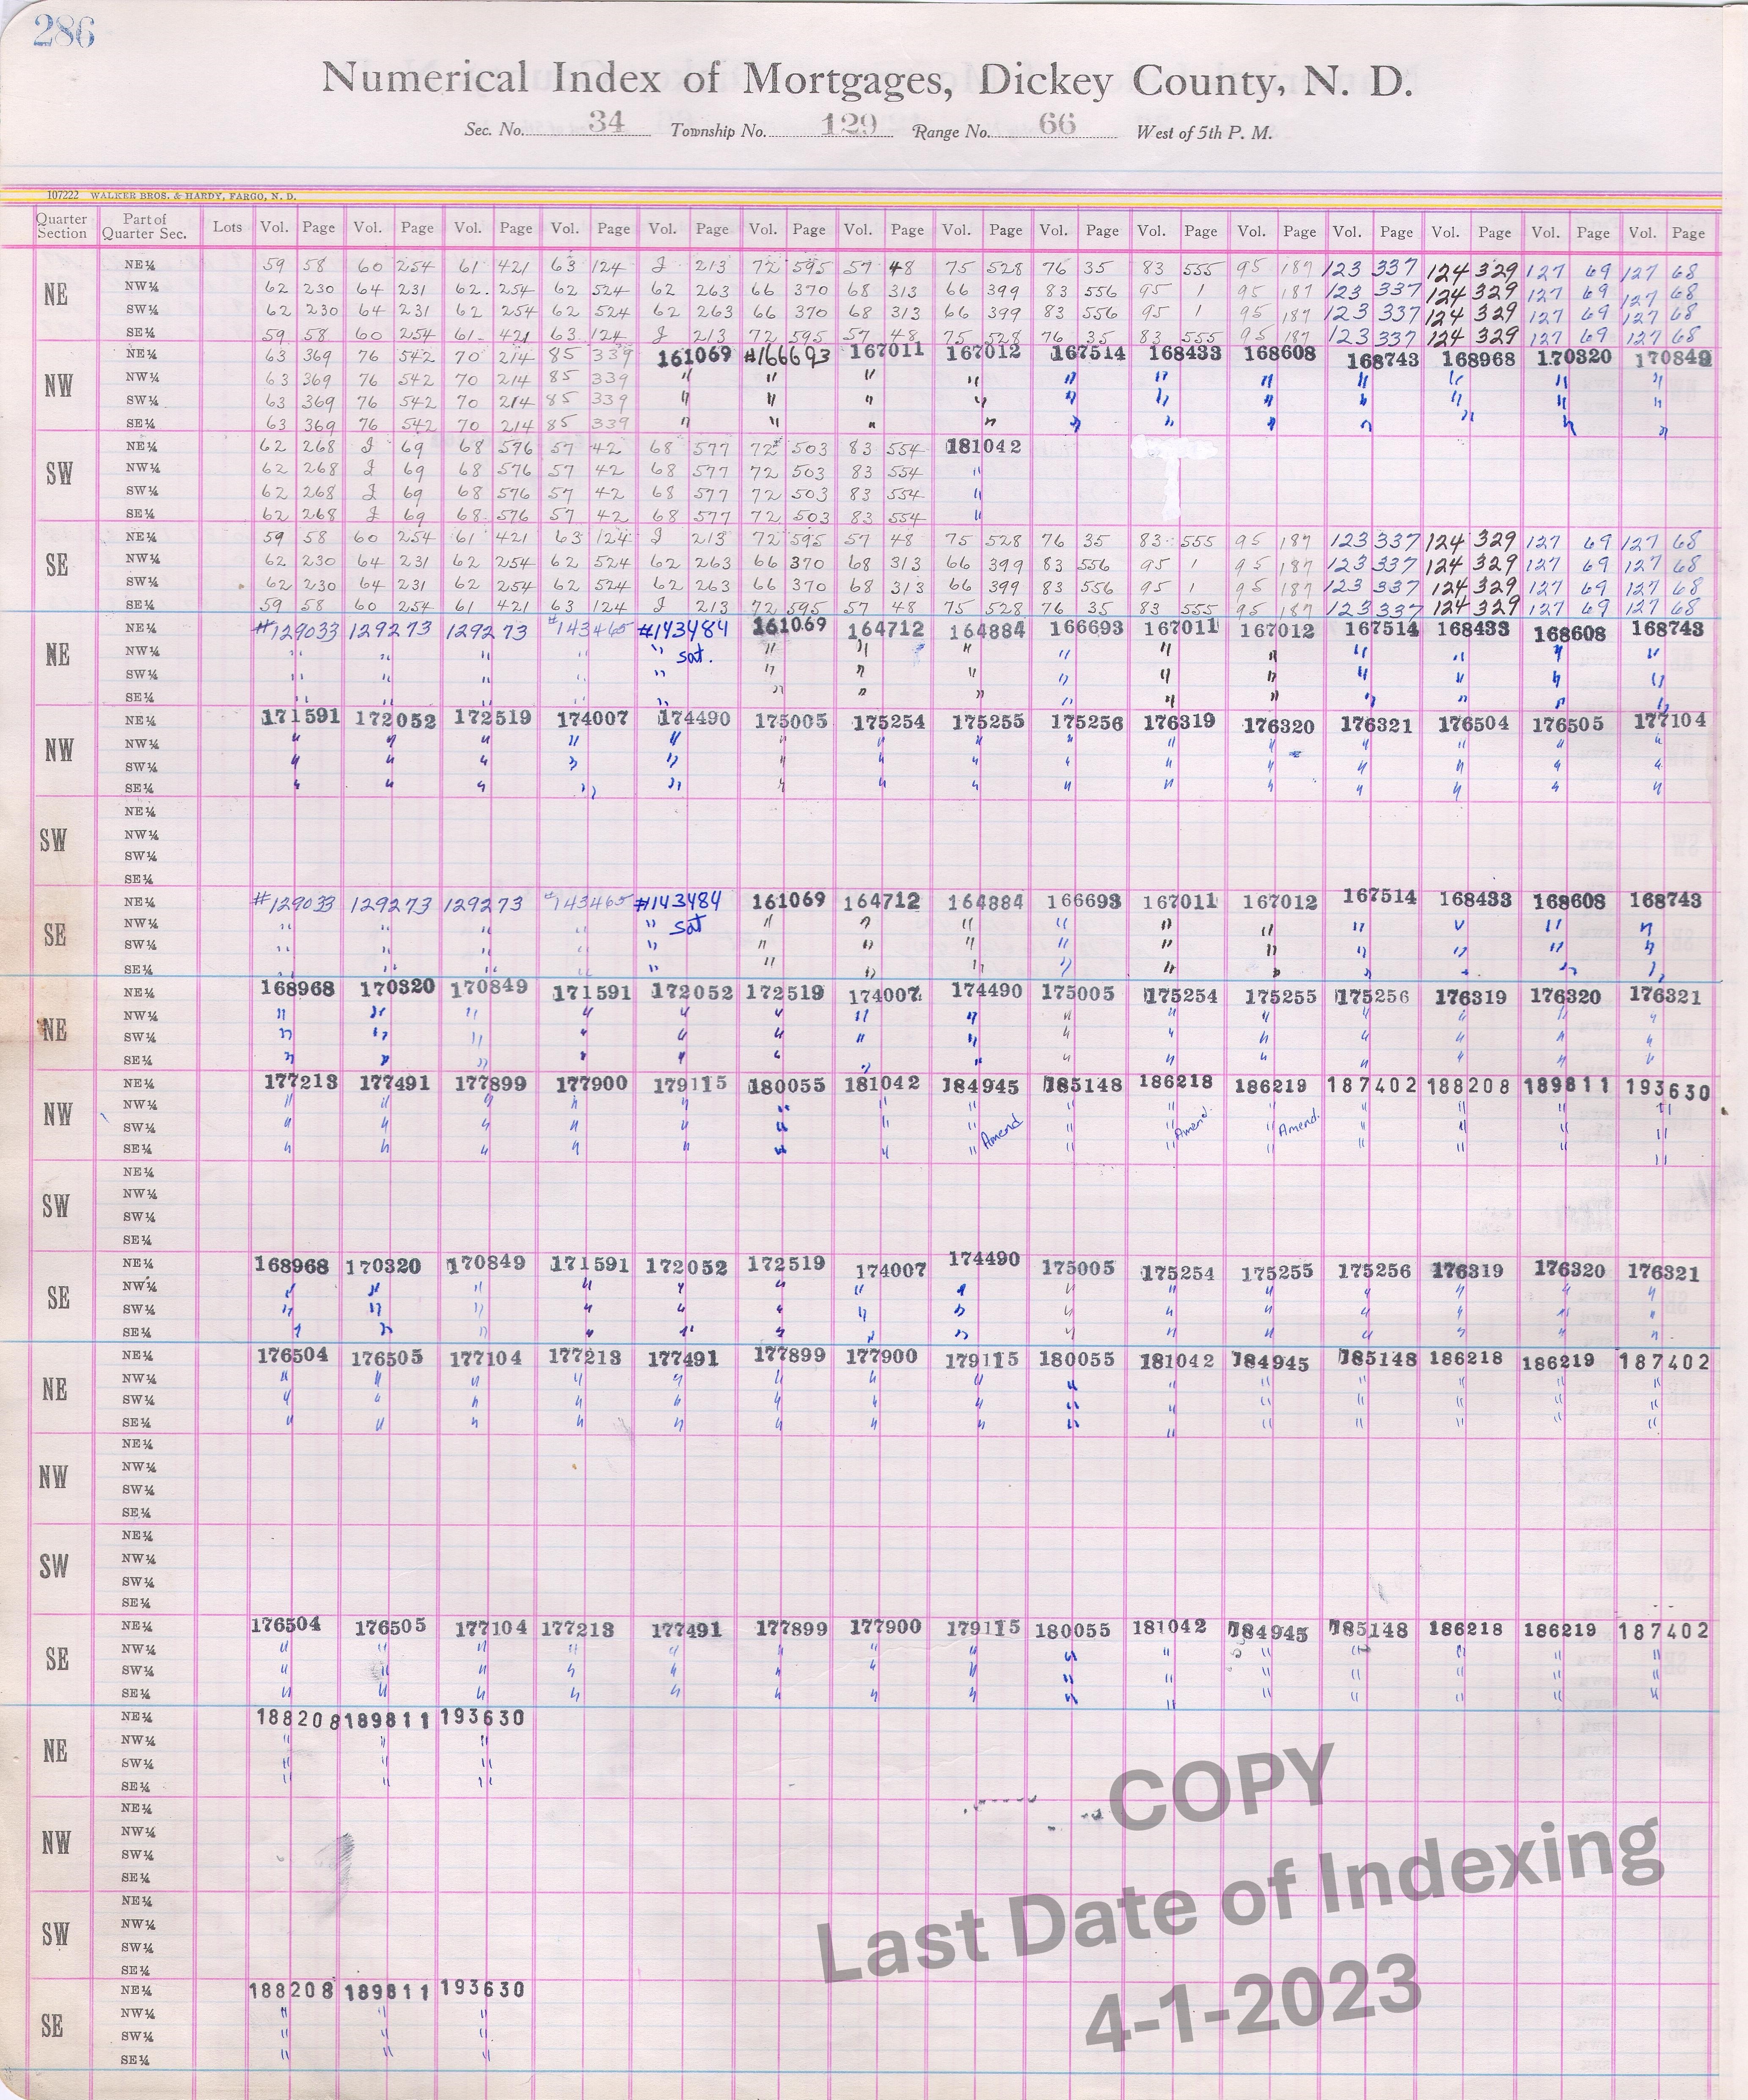 286
Numerical Index of Mortgages, Dickey County, N. D.
Sec. No. 34 Township No. 129 Range No. 66 West of 5th P. M.
107222 WALKER BROS. & HARDY, FARGO, N. D.
Quarter Section Part of Quarter Sec. Lots Vol. Page Vol. Page Vol. Page Vol. Page Vol. Page Vol. Page Vol. Page Vol. Page Vol. Page Vol. Page Vol. Page Vol. Page Vol. Page Vol. Page Vol. Page
NE
NE¼ 59 58 60 254 61 421 63 124 J 213 72 595 57 48 75 528 76 35 83 555 95 187 123 337 124 329 127 69 127 68
NW¼ 62 230 64 231 62 254 62 524 62 263 66 370 68 313 66 399 83 556 95 1 95 187 123 337 124 329 127 69 127 68
SW¼ 62 230 64 231 62 254 62 524 62 263 66 370 68 313 66 399 83 556 95 1 95 187 123 337 124 329 127 69 127 68
SE¼ 59 58 60 254 61 421 63 124 J 213 72 595 57 48 75 528 76 35 83 555 95 187 123 337 124 329 127 69 127 68
NW
NE¼ 63 369 76 542 70 214 85 339 161069 #166693 167011 167012 167514 168433 168608 168743 168968 170320 170849
NW¼ 63 369 76 542 70 214 85 339 " " " " " " " " " " "
SW¼ 63 369 76 542 70 214 85 339 " " " " " " " " " " "
SE¼ 63 369 76 542 70 214 85 339 " " " " " " " " " " "
SW
NE¼ 62 268 J 69 68 576 57 42 68 577 72 503 83 554 181042
NW¼ 62 268 J 69 68 576 57 42 68 577 72 503 83 554 "
SW¼ 62 268 J 69 68 576 57 42 68 577 72 503 83 554 "
SE¼ 62 268 J 69 68 576 57 42 68 577 72 503 83 554 "
SE
NE¼ 59 58 60 254 61 421 63 124 J 213 72 595 57 48 75 528 76 35 83 555 95 187 123 337 124 329 127 69 127 68
NW¼ 62 230 64 231 62 254 62 524 62 263 66 370 68 313 66 399 83 556 95 1 95 187 123 337 124 329 127 69 127 68
SW¼ 62 230 64 231 62 254 62 524 62 263 66 370 68 313 66 399 83 556 95 1 95 187 123 337 124 329 127 69 127 68
SE¼ 59 58 60 254 61 421 63 124 J 213 72 595 57 48 75 528 76 35 83 555 95 187 123 337 124 329 127 69 127 68
NE
NE¼ #129033 129273 129273 #143465 #143484 161069 164712 164884 166693 167011 167012 167514 168433 168608 168743
NW¼ " " " " " sat. " " " " " " " " " "
SW¼ " " " " " " " " " " " " " " "
SE¼ " " " " " " " " " " " " " " "
NW
NE¼ 171591 172052 172519 174007 174490 175005 175254 175255 175256 176319 176320 176321 176504 176505 177104
NW¼ " " " " " " " " " " " " " " "
SW¼ " " " " " " " " " " " " " " "
SE¼ " " " " " " " " " " " " " " "
SW
NE¼
NW¼
SW¼
SE¼
SE
NE¼ #129033 129273 129273 #143465 #143484 161069 164712 164884 166693 167011 167012 167514 168433 168608 168743
NW¼ " " " " " sat " " " " " " " " " "
SW¼ " " " " " " " " " " " " " " "
SE¼ " " " " " " " " " " " " " " "
NE
NE¼ 168968 170320 170849 171591 172052 172519 174007 174490 175005 175254 175255 175256 176319 176320 176321
NW¼ " " " " " " " " " " " " " " "
SW¼ " " " " " " " " " " " " " " "
SE¼ " " " " " " " " " " " " " " "
NW
NE¼ 177213 177491 177899 177900 179115 180055 181042 184945 185148 186218 186219 187402 188208 189811 193630
NW¼ " " " " " " " " " " " " " " "
SW¼ " " " " " " " " Amend " " Amend. " Amend. " " " "
SE¼ " " " " " " " " " " " " " " "
SW
NE¼
NW¼
SW¼
SE¼
SE
NE¼ 168968 170320 170849 171591 172052 172519 174007 174490 175005 175254 175255 175256 176319 176320 176321
NW¼ " " " " " " " " " " " " " " "
SW¼ " " " " " " " " " " " " " " "
SE¼ " " " " " " " " " " " " " " "
NE
NE¼ 176504 176505 177104 177213 177491 177899 177900 179115 180055 181042 184945 185148 186218 186219 187402
NW¼ " " " " " " " " " " " " " " "
SW¼ " " " " " " " " " " " " " " "
SE¼ " " " " " " " " " " " " " " "
NW
NE¼
NW¼
SW¼
SE¼
SW
NE¼
NW¼
SW¼
SE¼
SE
NE¼ 176504 176505 177104 177213 177491 177899 177900 179115 180055 181042 184945 185148 186218 186219 187402
NW¼ " " " " " " " " " " " " " " "
SW¼ " " " " " " " " " " " " " " "
SE¼ " " " " " " " " " " " " " " "
NE
NE¼ 188208 189811 193630
NW¼ " " "
SW¼ " " "
SE¼ " " "
NW
NE¼
NW¼
SW¼
SE¼
SW
NE¼
NW¼
SW¼
SE¼
SE
NE¼ 188208 189811 193630
NW¼ " " "
SW¼ " " "
SE¼ " " "
COPY
Last Date of Indexing
4-1-2023